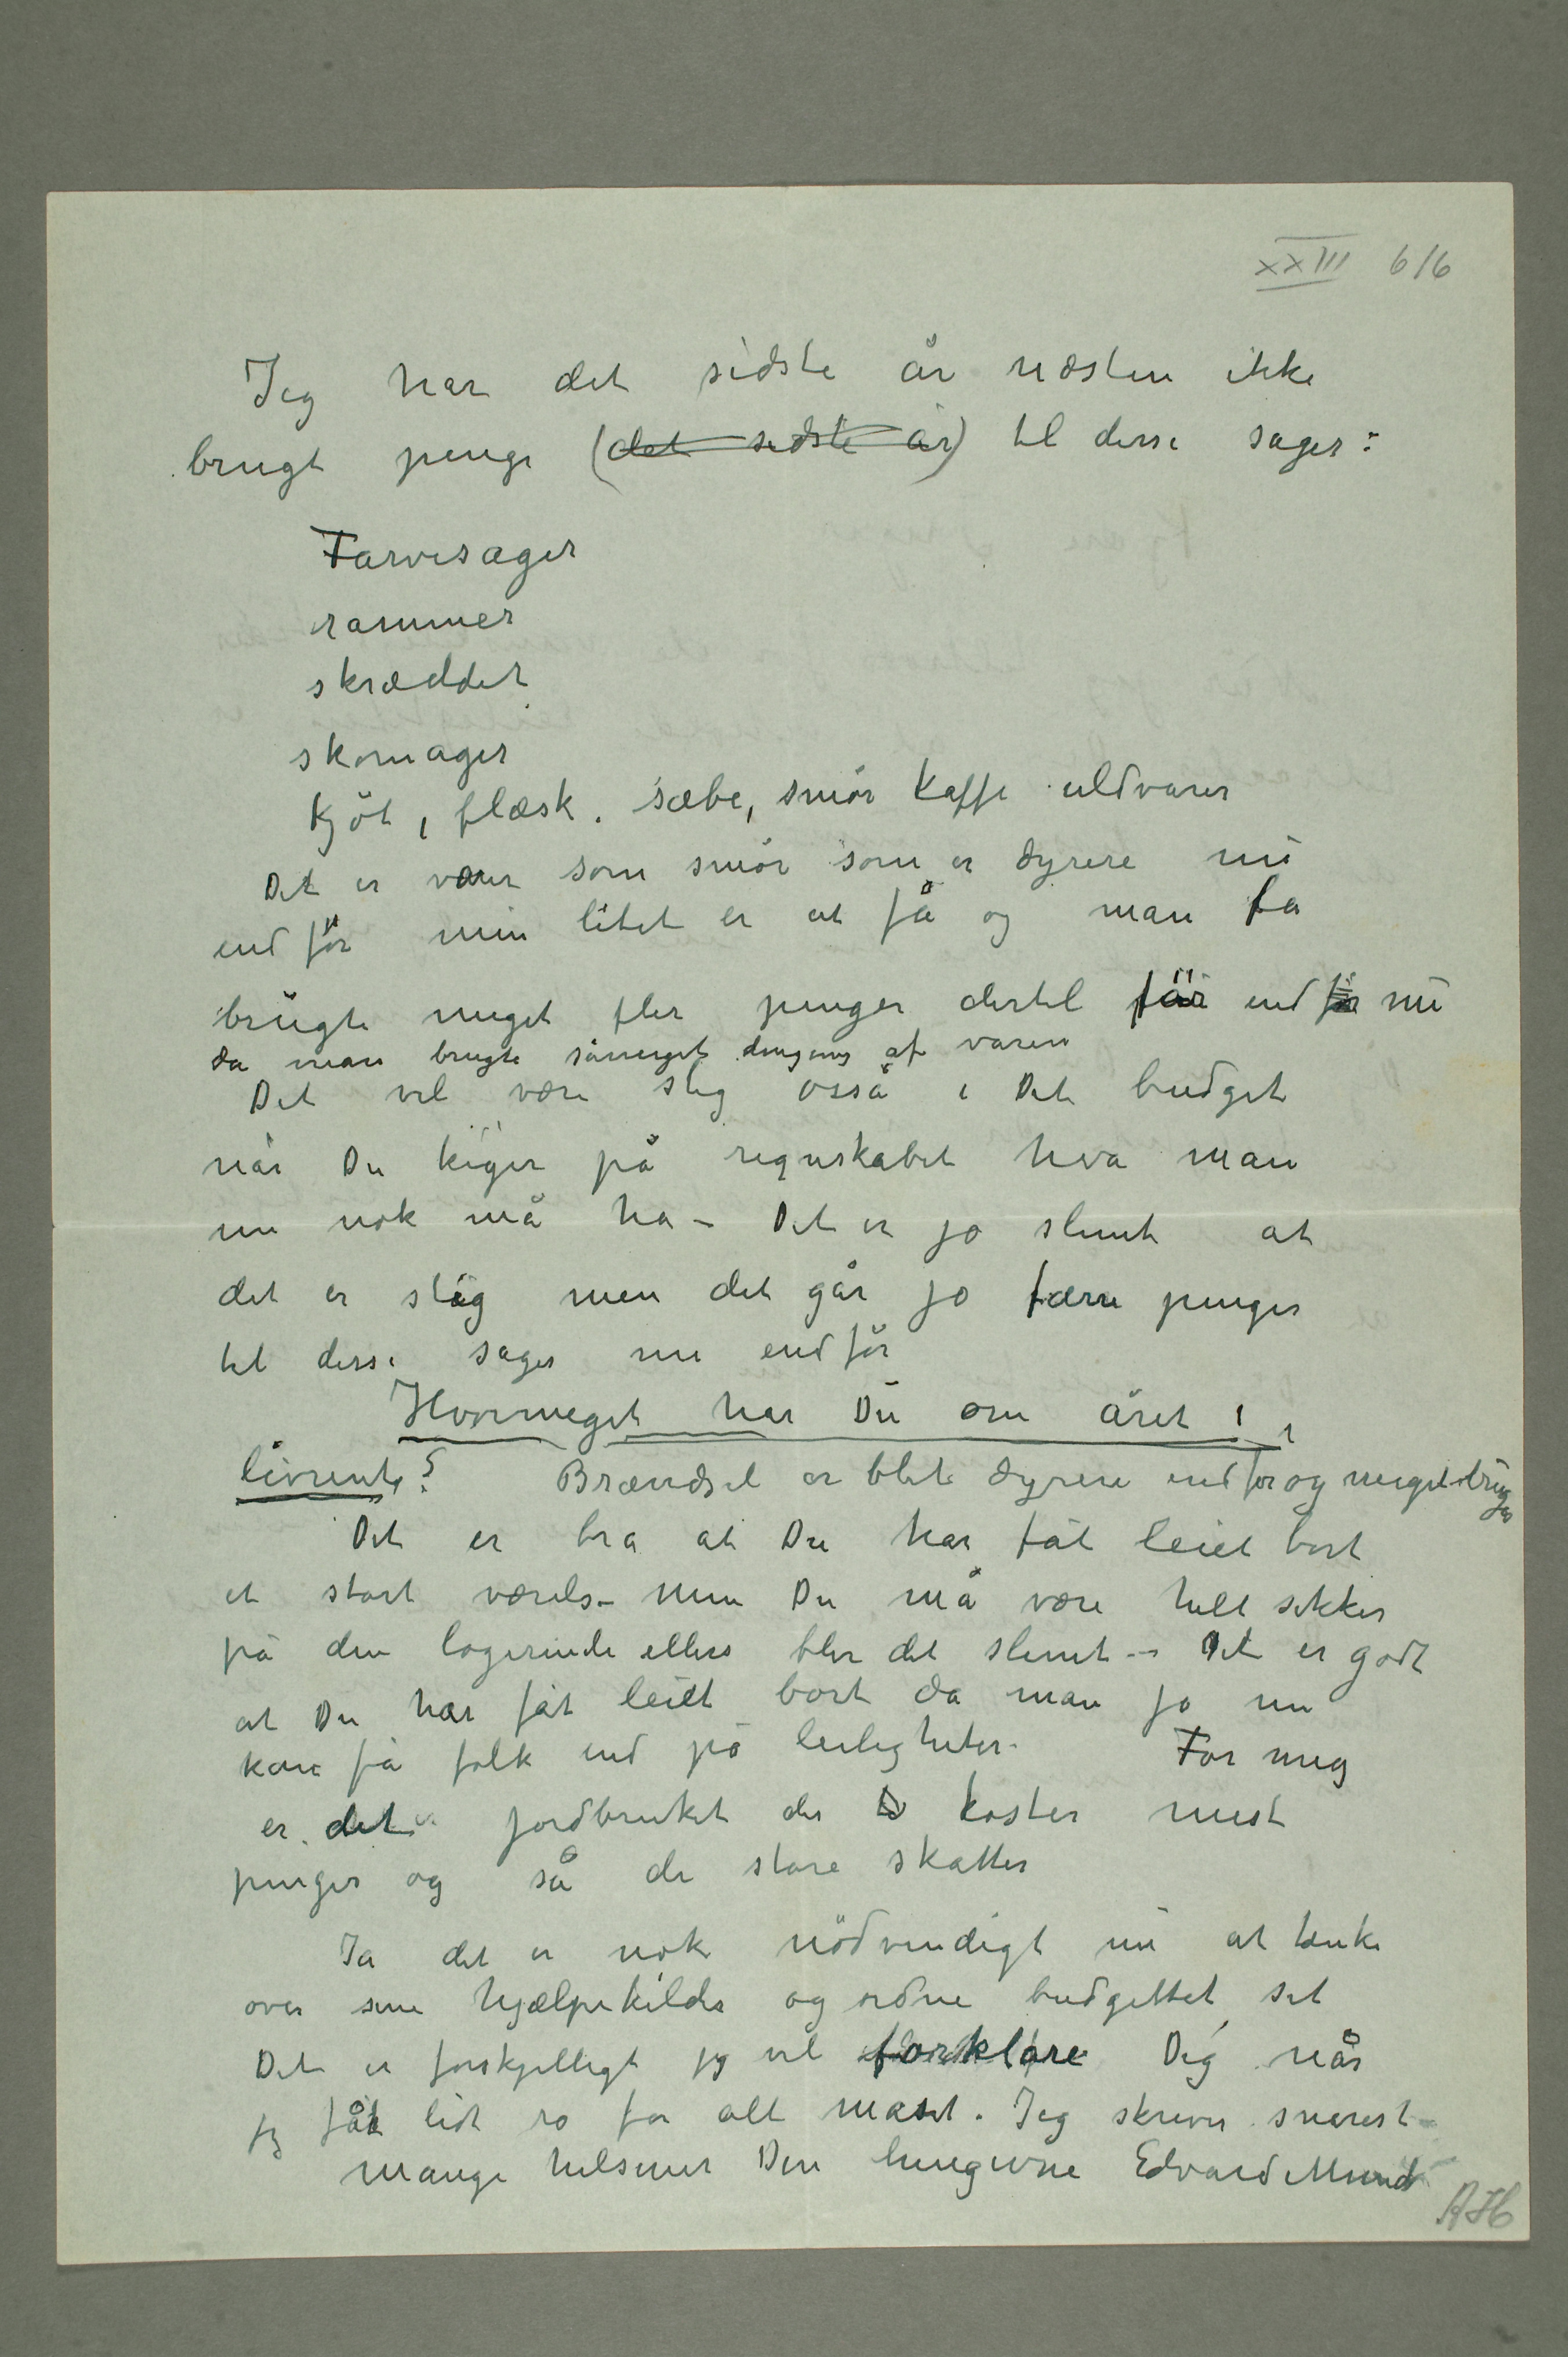 XXIII 6/6
Jeg har det sidste år næsten ikke
brugt penge (det sidste år) til disse sager:
Farvesager
rammer
skrædder
skomager
Kjöt, flæsk. sæbe, smör kaffe uldvarer
Det er varer som smör som er dyrere nu
end för men litet er at få og man
brugte meget fler penger dertil för end för nu
da man brugte såmeget af varen
Det vil være slig osså i Det budget
når Du kiger på regnskabet hva man
nu nok må ha – Det er jo slemt at
det er slig men det går jo færre penger
til disse sager nu end för
Hvormeget har Du om året i
livrente? Brændsel er blet dyrere end för og meget bruges
Det er bra at Du har fåt leiet bort
et stort værels – Men Du må være helt sikker
på den logerende ellers bler det slemt – Det er godt
at Du har fåt leiet bort da man jo nu
kan få folk ind på leiligheter. For meg
er det jordbruket der koster mest
penger og så de store skatter
Ja det er nok nödvendigt nu at tenke
over sine hjælpekilder og ordne budgettet sit
Det er forskjelligt jeg vil forklare Dig når
jeg får lidt ro for alt maset. Jeg skriver snarest –
Mange hilsener Din hengivne Edvard Munch
AH